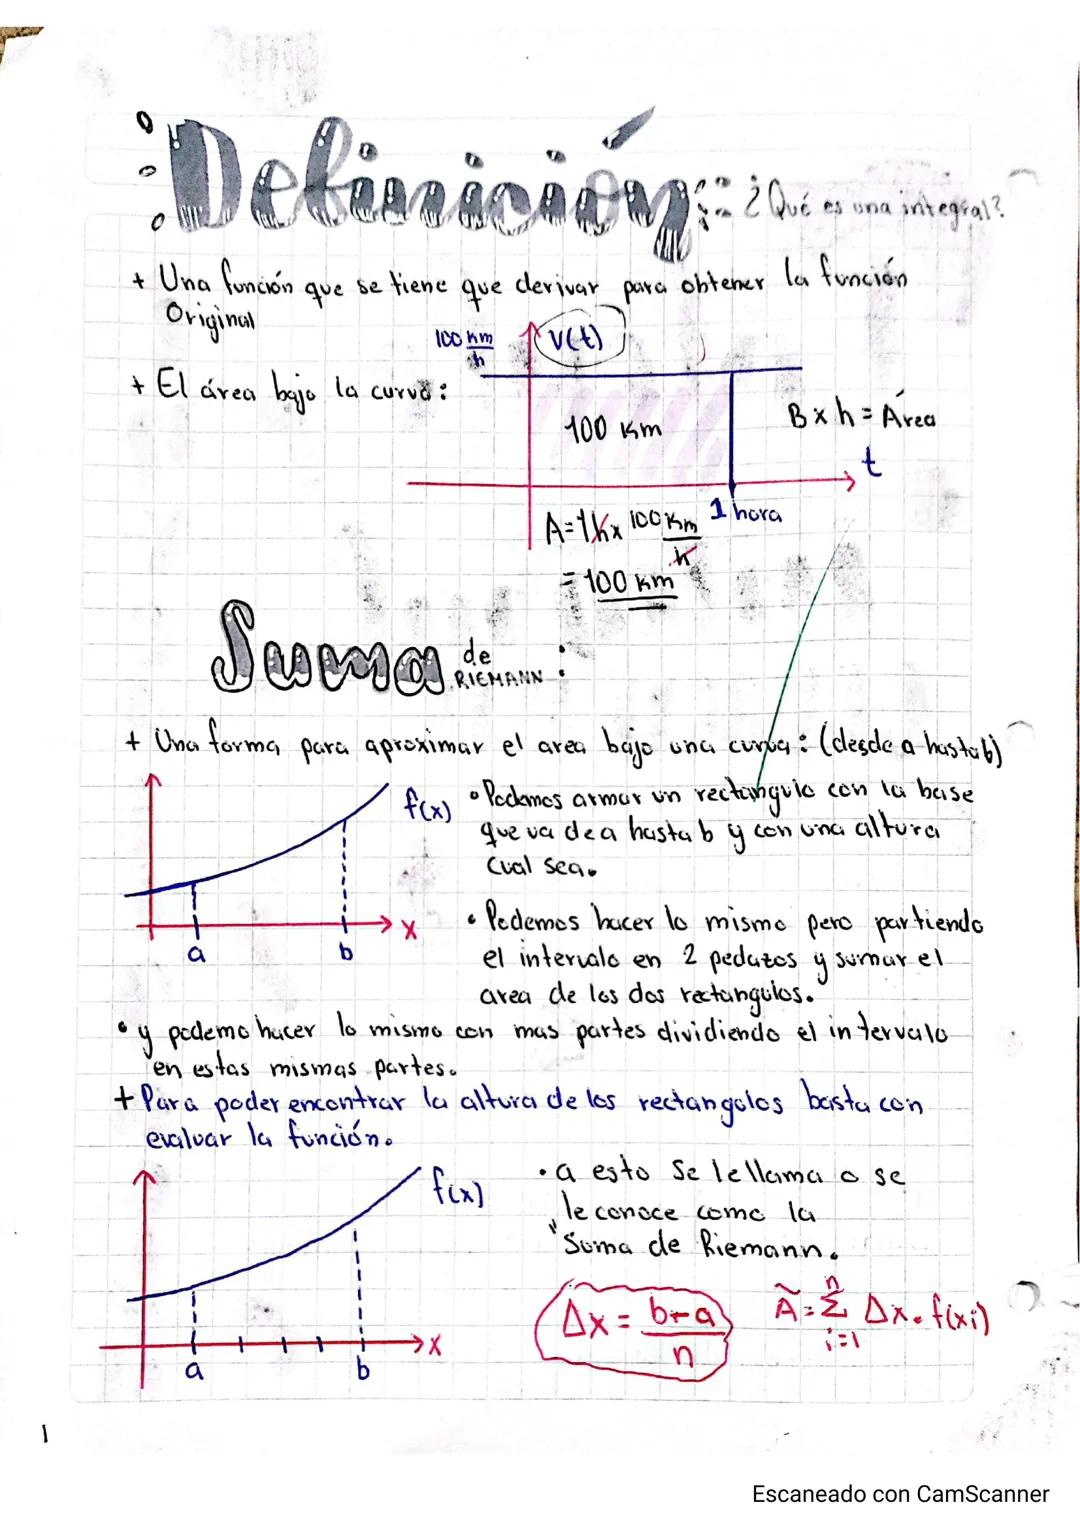 Definición: ¿Qué es una integral?
+ Una función que se tiene que derivar para obtener la función
Original
100 km/h
V(t)
+ El área bajo la curva:
100 km
B x h = Área
t
1 hora
A=1h x 100 km/h
= 100 km
Suma de RIEMANN:
+ Una forma para aproximar el area bajo una curva: (desde a hasta b)
f(x)
• Podemos armar un rectángulo con la base
que va de a hasta b y con una altura
cual sea.
x
a
b
• Podemos hacer lo mismo pero partiendo
el intervalo en 2 pedazos y sumar el
area de los dos rectangulos.
• y podemo hacer lo mismo con mas partes dividiendo el intervalo
en estas mismas partes.
+ Para poder encontrar la altura de los rectangulos basta con
evaluar la función.
f(x)
• a esto se le llama o se
le conoce como la
"Suma de Riemann.
Δx = b-a/n
Ã = n Σ i=1 Δx • f(xi)
x
a
b
1
Escaneado con CamScanner